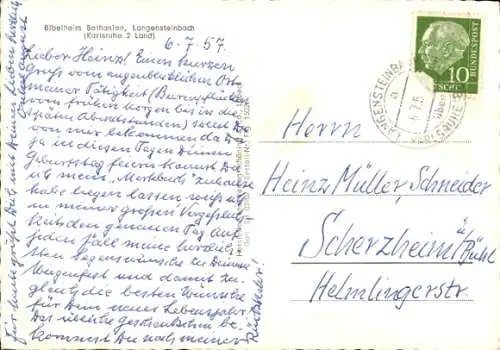 Bibelheim Bethanien, Langensteinbach
(Karlsruhe 2 Land)
6.7.57.
Lieber Heinz! Einen kurzen
Gruß vom augenblicklichen Ort
meiner Tätigkeit
vom frühen Morgen bis in die
späten Abendstunden) sollst Du
von mir bekommen da Du
ja in diesen Tagen Deinen
Geburtstag feiern kannst. Da
ich mein "Merkbuch" zuhause
habe liegen lassen, weiß ich
in meiner großen Vergeßlich-
keit den genauen Tag. Auf
jeden Fall meine herzlich-
sten Segenswünsche zu Deinem
Wiegenfest und damit zu-
gleich die besten Wünsche
für Dein neues Lebensjahr.
Das übliche Geschenkchen be-
kommst Du nach meiner
Rückkehr!
Für heute grüßt Dich und Deine Lieben herzlich
DEUTSCHE
BUNDESPOST
10
LANGENSTEINBACH
über
KARLSRUHE
a
Herrn
Heinz Müller, Schneider
Scherzheim ü/Bühl
Helmlingerstr.